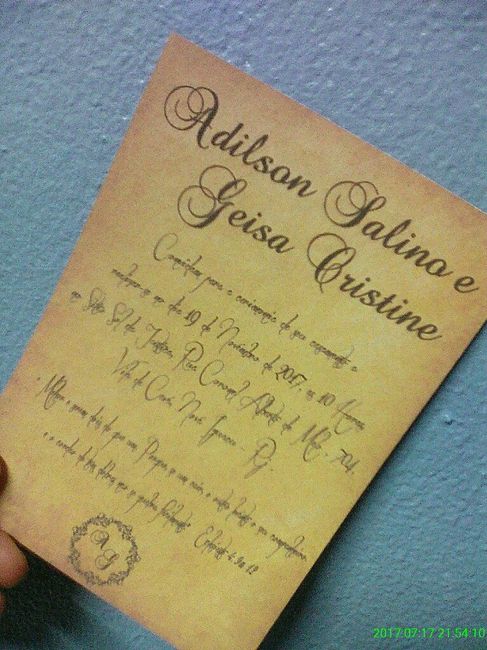 Adilson Salino e
Geisa Cristine
Convidam para a cerimonia de seu casamento a
realizar-se no dia 19 de Novembro de 2017, as 10 Horas
no Sitio Sol de Rua Coronel Alberto de Mello, 704,
Vila de Cava, Nova Iguacu - Rj.
Melhor e serem dois do que um. Porque se um cair, o outro
e o cordao de tres dobras nao se quebra facilmente. 4.9a12
A G
2017.07.17 21:54:10